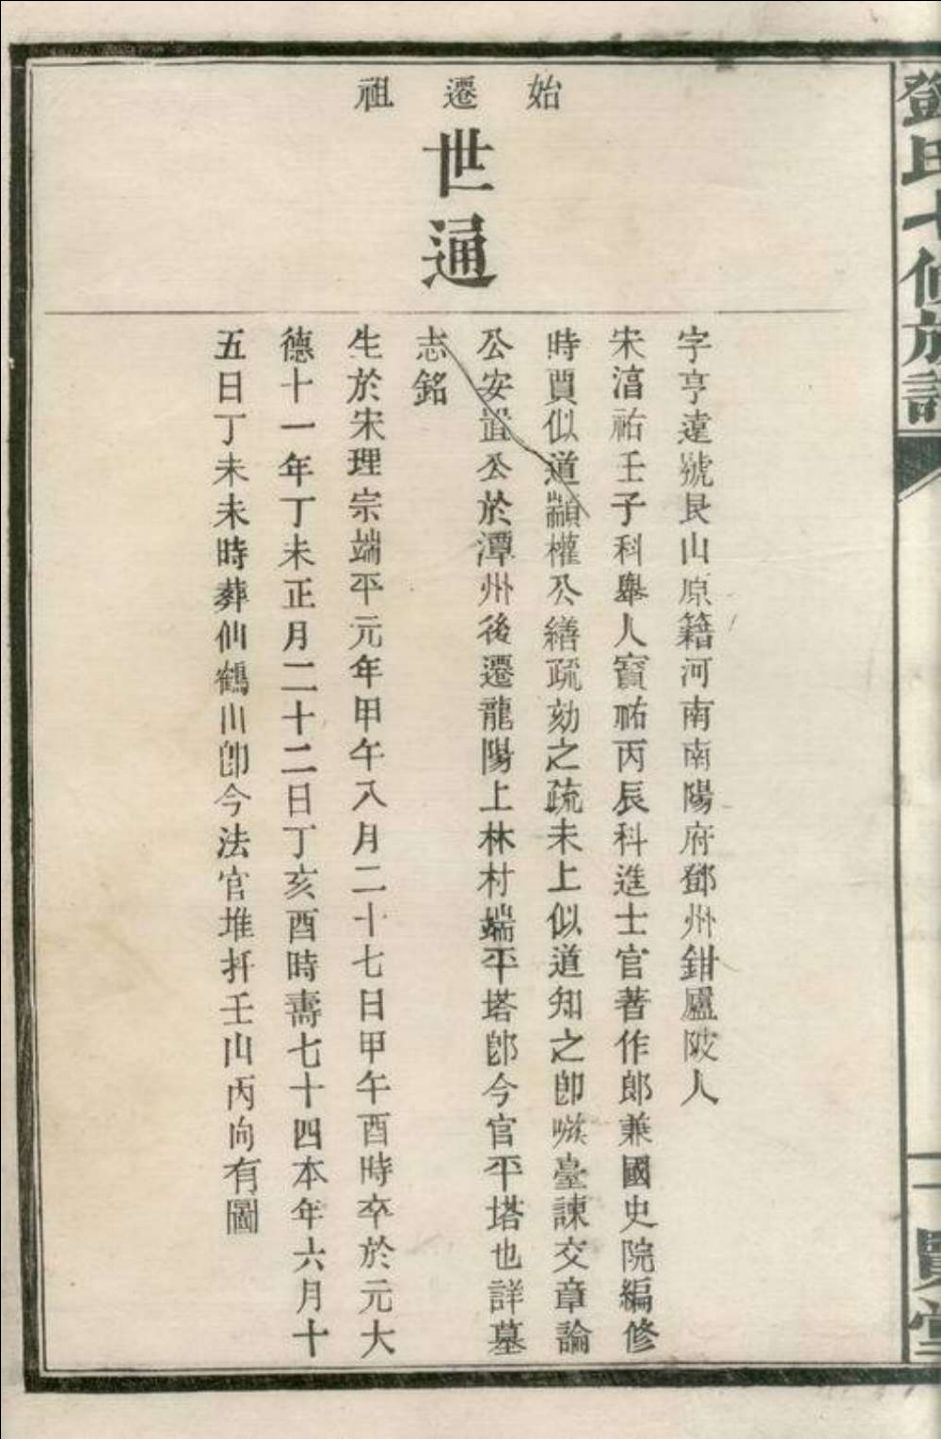 鄧氏七修族譜
始遷祖
世通
字亨遠號艮山原籍河南南陽府鄧州鉗廬陂人
宋淯祐壬子科舉人寳祐丙辰科進士官著作郎兼國史院編修
時賈似道顓權公繕疏劾之疏未上似道知之卽嗾臺諫交章論
公安置公於潭州後遷龍陽上林村端平塔卽今官平塔也詳墓
志銘
生於宋理宗端平元年甲午八月二十七日甲午酉時卒於元大
德十一年丁未正月二十二日丁亥酉時壽七十四本年六月十
五日丁未未時葬仙鶴山卽今法官堆扦壬山丙向有圖